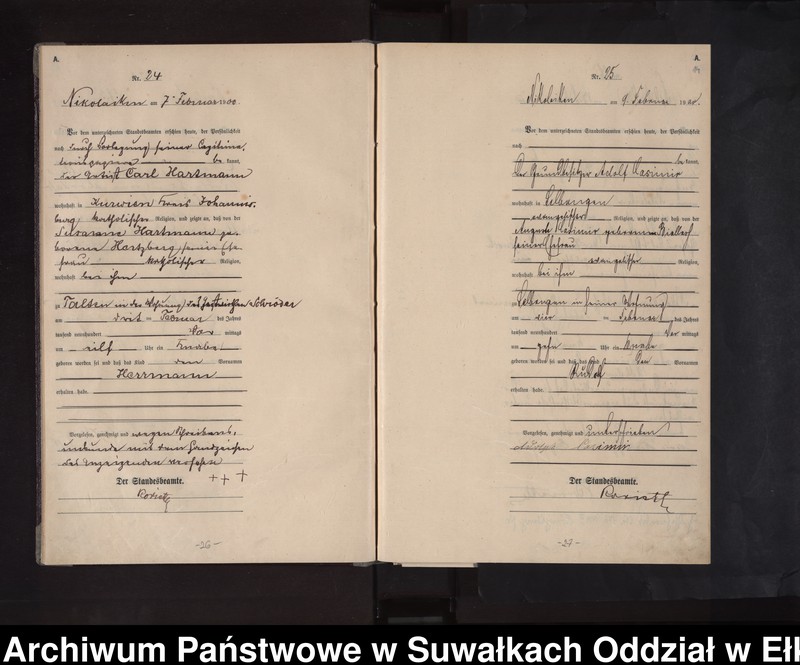 A.
Nr. 24
Nikolaiken am 7. Februar 1900.
Vor dem unterzeichneten Standesbeamten erschien heute, der Persönlichkeit
nach durch Vorlegung seiner
be kannt,
der Artist Carl Hartmann
wohnhaft in Kurwien Kreis Johannis-
burg, katholischer Religion, und zeigte an, daß von der
Hartmann ge-
borene Hartzberg, seiner Ehe-
frau katholischer Religion,
wohnhaft bei ihm
zu Talten in der Wohnung des Gastwirthen Schröder
am drit en Februar des Jahres
tausend neunhundert Vor mittags
um eilf Uhr ein Knabe
geboren worden sei und daß das Kind den Vornamen
Herrmann
erhalten habe.
Vorgelesen, genehmigt und wegen Schreibens-
unkunde mit drei Handzeichen
des Anzeigenden versehen
+++
Der Standesbeamte.
-26-
A.
Nr. 25
Nikolaiken am 9. Februar 1900.
Vor dem unterzeichneten Standesbeamten erschien heute, der Persönlichkeit
nach
be kannt,
Der Grundbesitzer Adolf Casimir
wohnhaft in
evangelischer Religion, und zeigte an, daß von der
Auguste Casimir geborenen
seiner Ehefrau
evangelischer Religion,
wohnhaft bei ihm
zu in seiner Wohnung
am vier en Februar des Jahres
tausend neunhundert Vor mittags
um zehn Uhr ein Knabe
geboren worden sei und daß das Kind den Vornamen
Rudolf
erhalten habe.
Vorgelesen, genehmigt und unterschrieben
Adolph Casimir
Der Standesbeamte.
-27-
Archiwum Państwowe w Suwałkach Oddział w Ełk